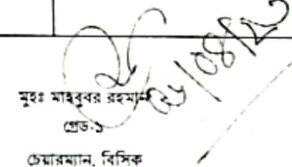 মুহঃ মাহবুবর রহমান
গ্রেড-১
চেয়ারম্যান, বিসিক